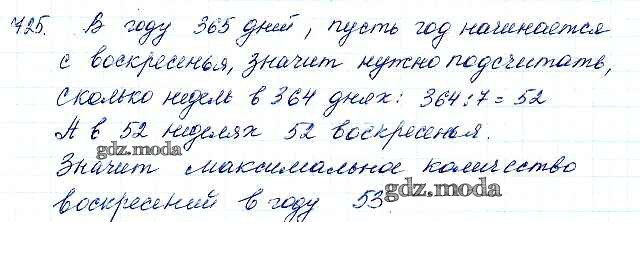 725. В году 365 дней, пусть год начинается
с воскресенья, значит нужно подсчитать,
сколько недель в 364 днях: 364:7=52
А в 52 неделях 52 воскресенья.
gdz.moda
Значит максимальное количество
gdz.moda
воскресений в году 53